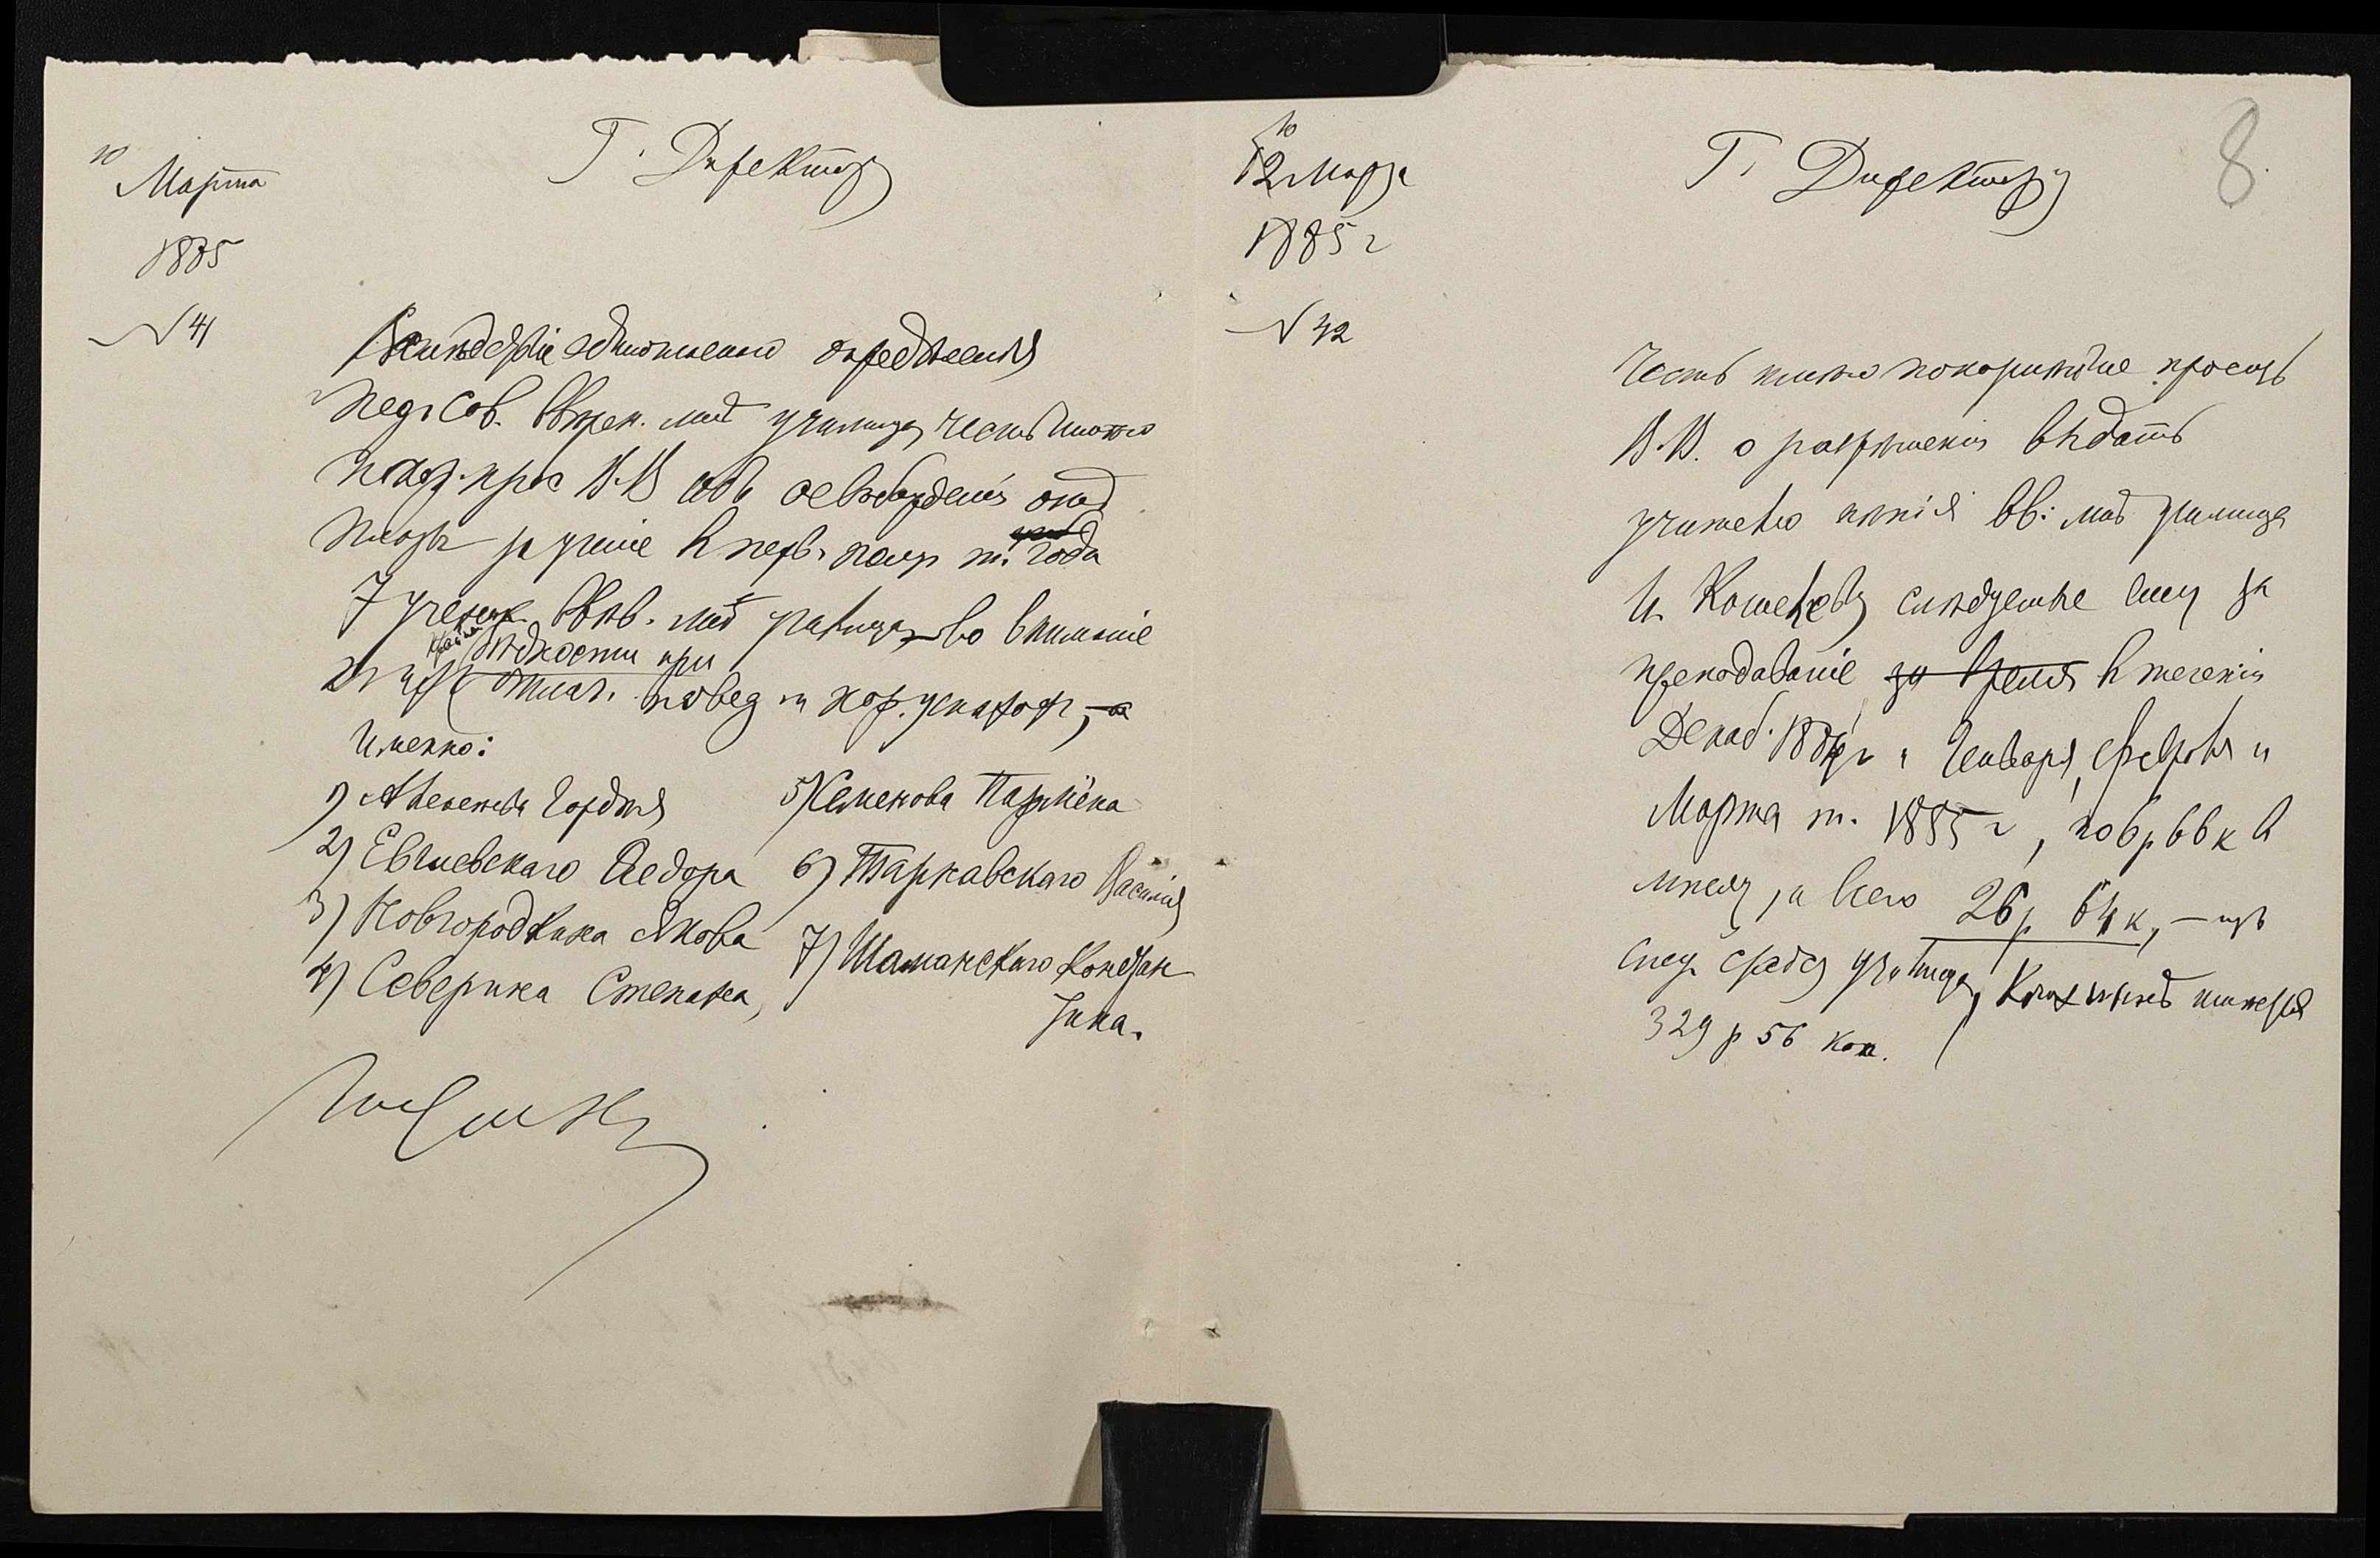 10 Марта
1885
№ 41
Г. Директору
Вслѣдствіе единогласнаго опредѣленія
Пед. Сов. ввѣрен. мнѣ училища, честь имѣю
прос В.В. объ освобожденіи отъ
платы за ученіе в перв. полуг т. года
7 ученик. ввѣр. мнѣ училища, во вниманіе
крайн бѣдности при
отлич. повед и хор. успѣхов, а
именно:
1) Гордѣя
2) Евгиевскаго Ѳедора
3) Новгородкина Якова
4) Северина Степана,
5) Семенова Парѳёна
6) Тарнавскаго Василія
7) Шаманскаго Констан
тина.
10
12 Марта
1885 г
№ 42
Г. Директору
8
Честь имѣю покорнѣйше просить
В.В. о разрѣшеніи выдать
учителю пѣнія вв: мнѣ училища
И. Кошелеву слѣдуемыя ему за
преподаваніе за время в теченіи
Декаб. 1884 г и Января, Февраля и
Марта т. 1885 г, по 6 р 66 к в
мѣсяц, а всего 26 р 64 к, — изъ
спец. средст училища, коих имѣется
329 р 56 коп.